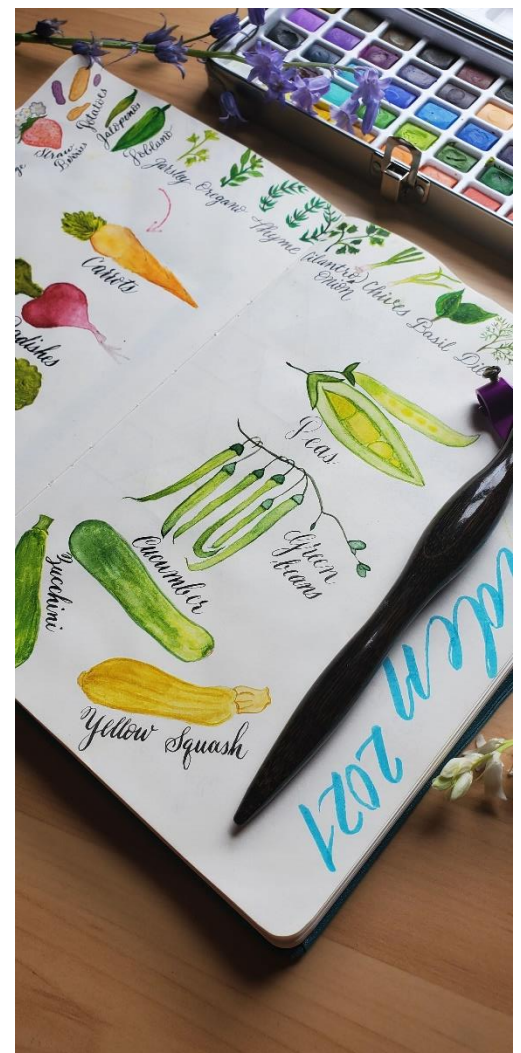 Straw
Berries
Potatoes
Jalapenos
Poblano
parsley
Oregano
Thyme
Cilantro
Onion
Chives
Basil
Carrots
Peas
Green
beans
Cucumber
Zucchini
Yellow Squash
2021